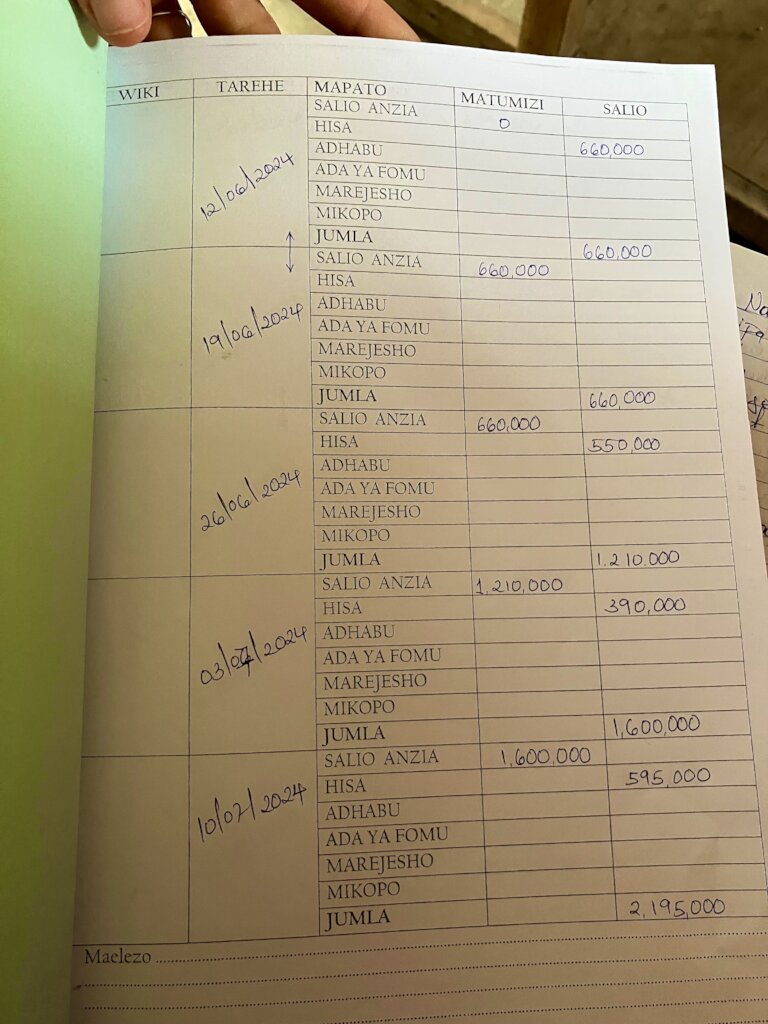 WIKI TAREHE MAPATO MATUMIZI SALIO
12/06/2024
SALIO ANZIA 0
HISA
ADHABU 660,000
ADA YA FOMU
MAREJESHO
MIKOPO
JUMLA 660,000
19/06/2024
SALIO ANZIA 660,000
HISA
ADHABU
ADA YA FOMU
MAREJESHO
MIKOPO
JUMLA 660,000
26/06/2024
SALIO ANZIA 660,000
HISA 550,000
ADHABU
ADA YA FOMU
MAREJESHO
MIKOPO
JUMLA 1.210.000
03/07/2024
SALIO ANZIA 1,210,000
HISA 390,000
ADHABU
ADA YA FOMU
MAREJESHO
MIKOPO
JUMLA 1,600,000
10/07/2024
SALIO ANZIA 1,600,000
HISA 595,000
ADHABU
ADA YA FOMU
MAREJESHO
MIKOPO
JUMLA 2,195,000
Maelezo